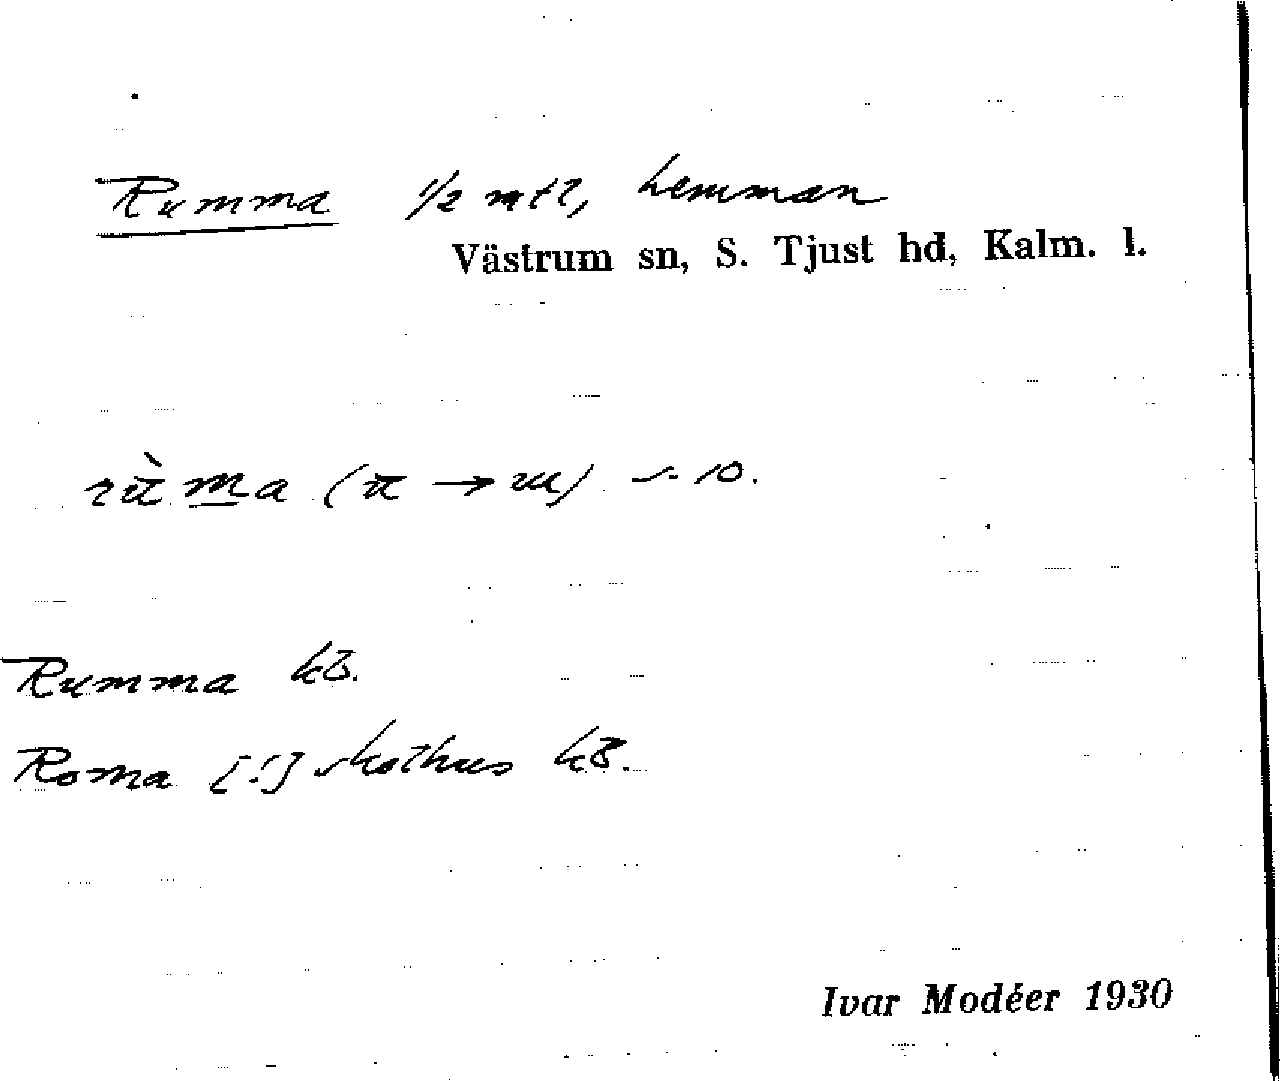 Rumma 1/2 mtl, hemman
Västrum sn, S. Tjust hd, Kalm. l.
Rumma kB.
Roma [!] skathus kB.
Ivar Modéer 1930